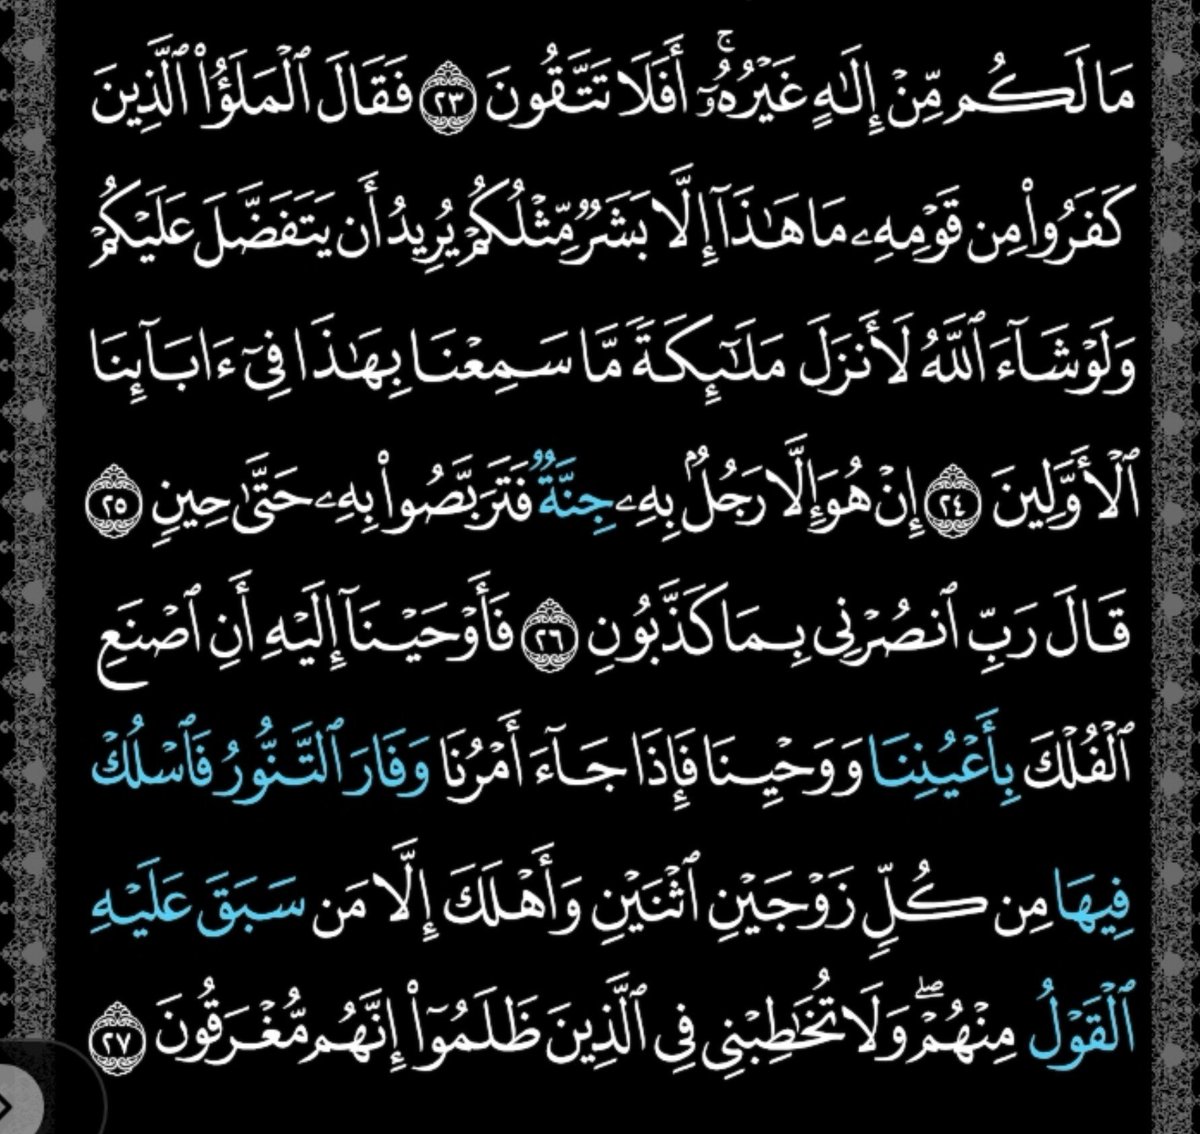 مَا لَكُم مِّنْ إِلَٰهٍ غَيْرُهُۥٓ ۚ أَفَلَا تَتَّقُونَ ٢٣ فَقَالَ ٱلْمَلَؤُا۟ ٱلَّذِينَ
كَفَرُوا۟ مِن قَوْمِهِۦ مَا هَٰذَآ إِلَّا بَشَرٌ مِّثْلُكُمْ يُرِيدُ أَن يَتَفَضَّلَ عَلَيْكُمْ
وَلَوْ شَآءَ ٱللَّهُ لَأَنزَلَ مَلَٰٓئِكَةً مَّا سَمِعْنَا بِهَٰذَا فِىٓ ءَابَآئِنَا
ٱلْأَوَّلِينَ ٢٤ إِنْ هُوَ إِلَّا رَجُلٌۢ بِهِۦ جِنَّةٌ فَتَرَبَّصُوا۟ بِهِۦ حَتَّىٰ حِينٍ ٢٥
قَالَ رَبِّ ٱنصُرْنِى بِمَا كَذَّبُونِ ٢٦ فَأَوْحَيْنَآ إِلَيْهِ أَنِ ٱصْنَعِ
ٱلْفُلْكَ بِأَعْيُنِنَا وَوَحْيِنَا فَإِذَا جَآءَ أَمْرُنَا وَفَارَ ٱلتَّنُّورُ فَٱسْلُكْ
فِيهَا مِن كُلٍّ زَوْجَيْنِ ٱثْنَيْنِ وَأَهْلَكَ إِلَّا مَن سَبَقَ عَلَيْهِ
ٱلْقَوْلُ مِنْهُمْ ۖ وَلَا تُخَٰطِبْنِى فِى ٱلَّذِينَ ظَلَمُوٓا۟ إِنَّهُم مُّغْرَقُونَ ٢٧